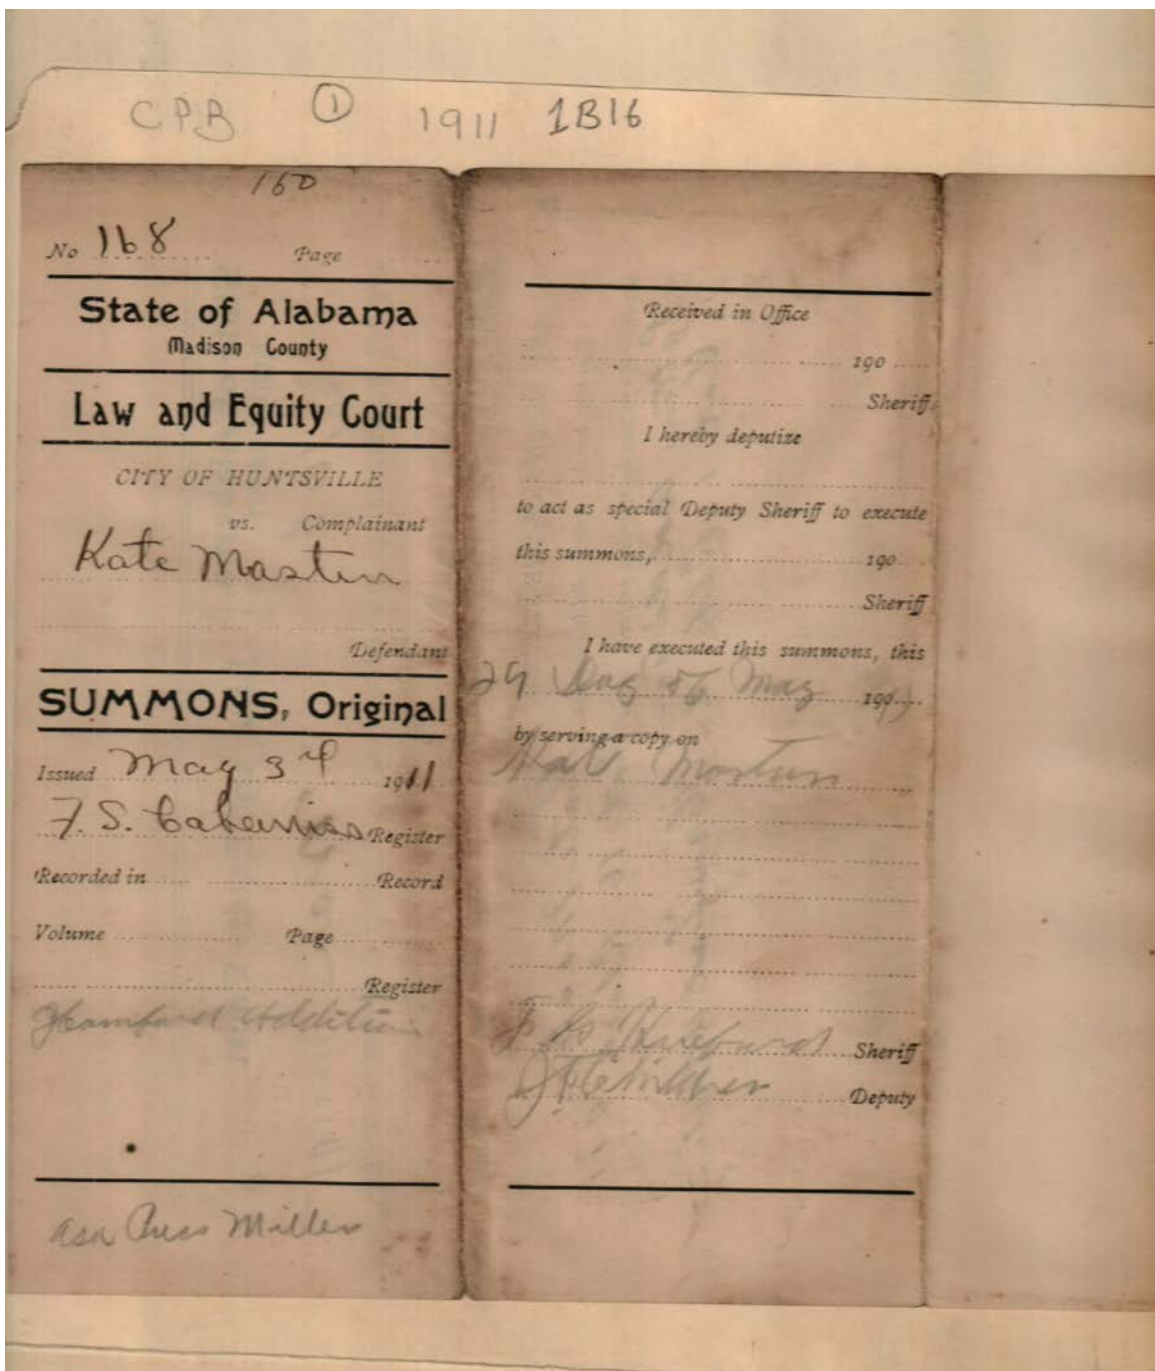 CPB ① 1911 1B16
160
No 168 Page
State of Alabama
Madison County
Law and Equity Court
CITY OF HUNTSVILLE
vs. Complainant
Kate Mastin
Defendant
SUMMONS, Original
Issued May 3rd 1911
F. S. Cabaniss Register
Recorded in Record
Volume Page
Register
Addition
Miller
Received in Office
190
Sheriff
I hereby deputize
to act as special Deputy Sheriff to execute
this summons, 190
Sheriff
I have executed this summons, this
29 Day of May 190
by serving a copy on
Kate Mastin
Sheriff
Deputy